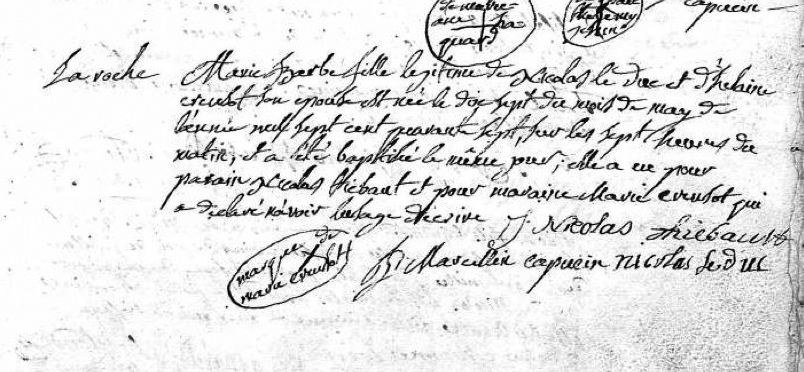 de marie
capucin
anne ja
quard
La roche
Marie Barbe fille legitime de Nicolas le duc et d'helaine
creulot son epouse est née le dix sept du mois de may de
l'année mil sept cent quarante sept, sur les sept heures du
matin, et a été baptisée le même jour; elle a eu pour
parain Nicolas thiebaut et pour maraine Marie creulot qui
a declaré n'avoir l'usage d'ecrire J Nicolas thiebault
marque de
marie creulot
Marcellin capucin nicolas le duc